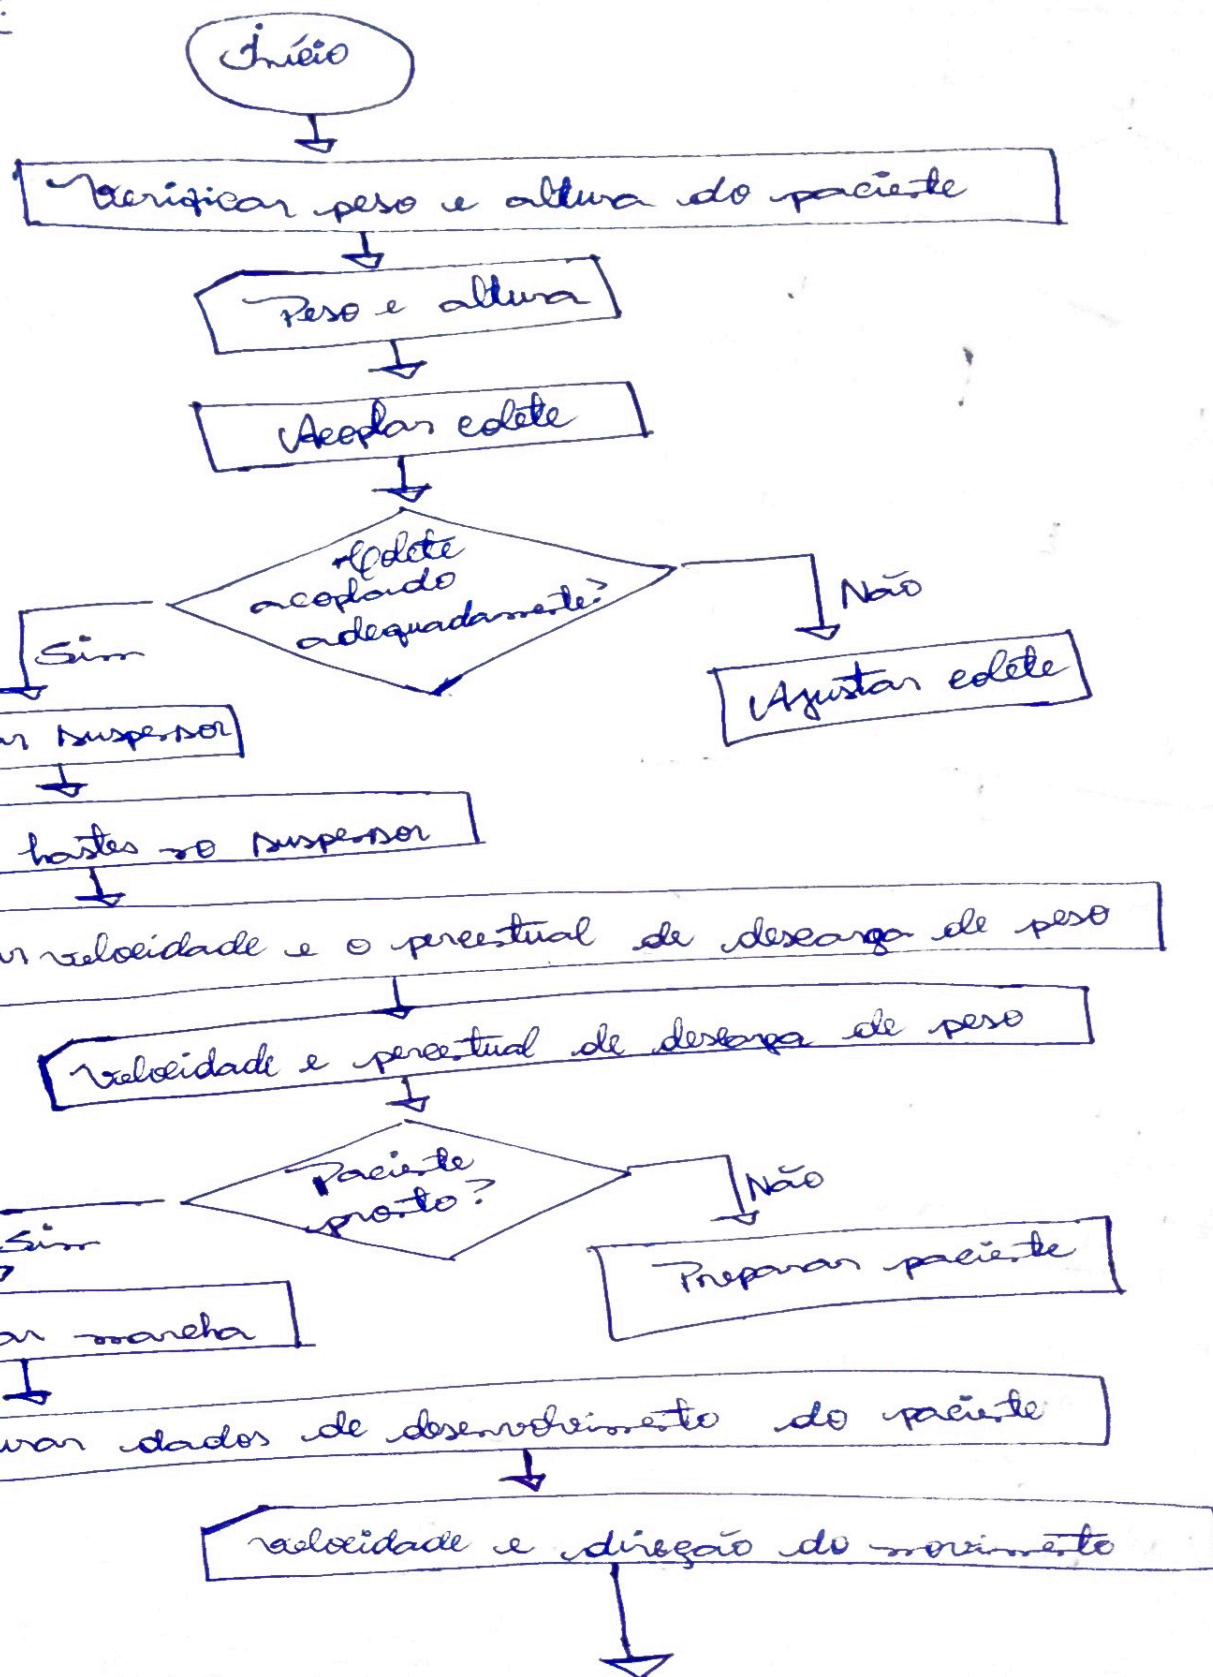 Início
Verificar peso e altura do paciente
Peso e altura
Acoplar colete
Colete
acoplado
adequadamente?
Não
Sim
Ajustar colete
ar suspensor
hastes no suspensor
ar velocidade e o percentual de descarga de peso
Velocidade e percentual de descarga de peso
Paciente
pronto?
Não
Sim
Preparar paciente
ar marcha
urar dados de desenvolvimento do paciente
velocidade e direção do movimento